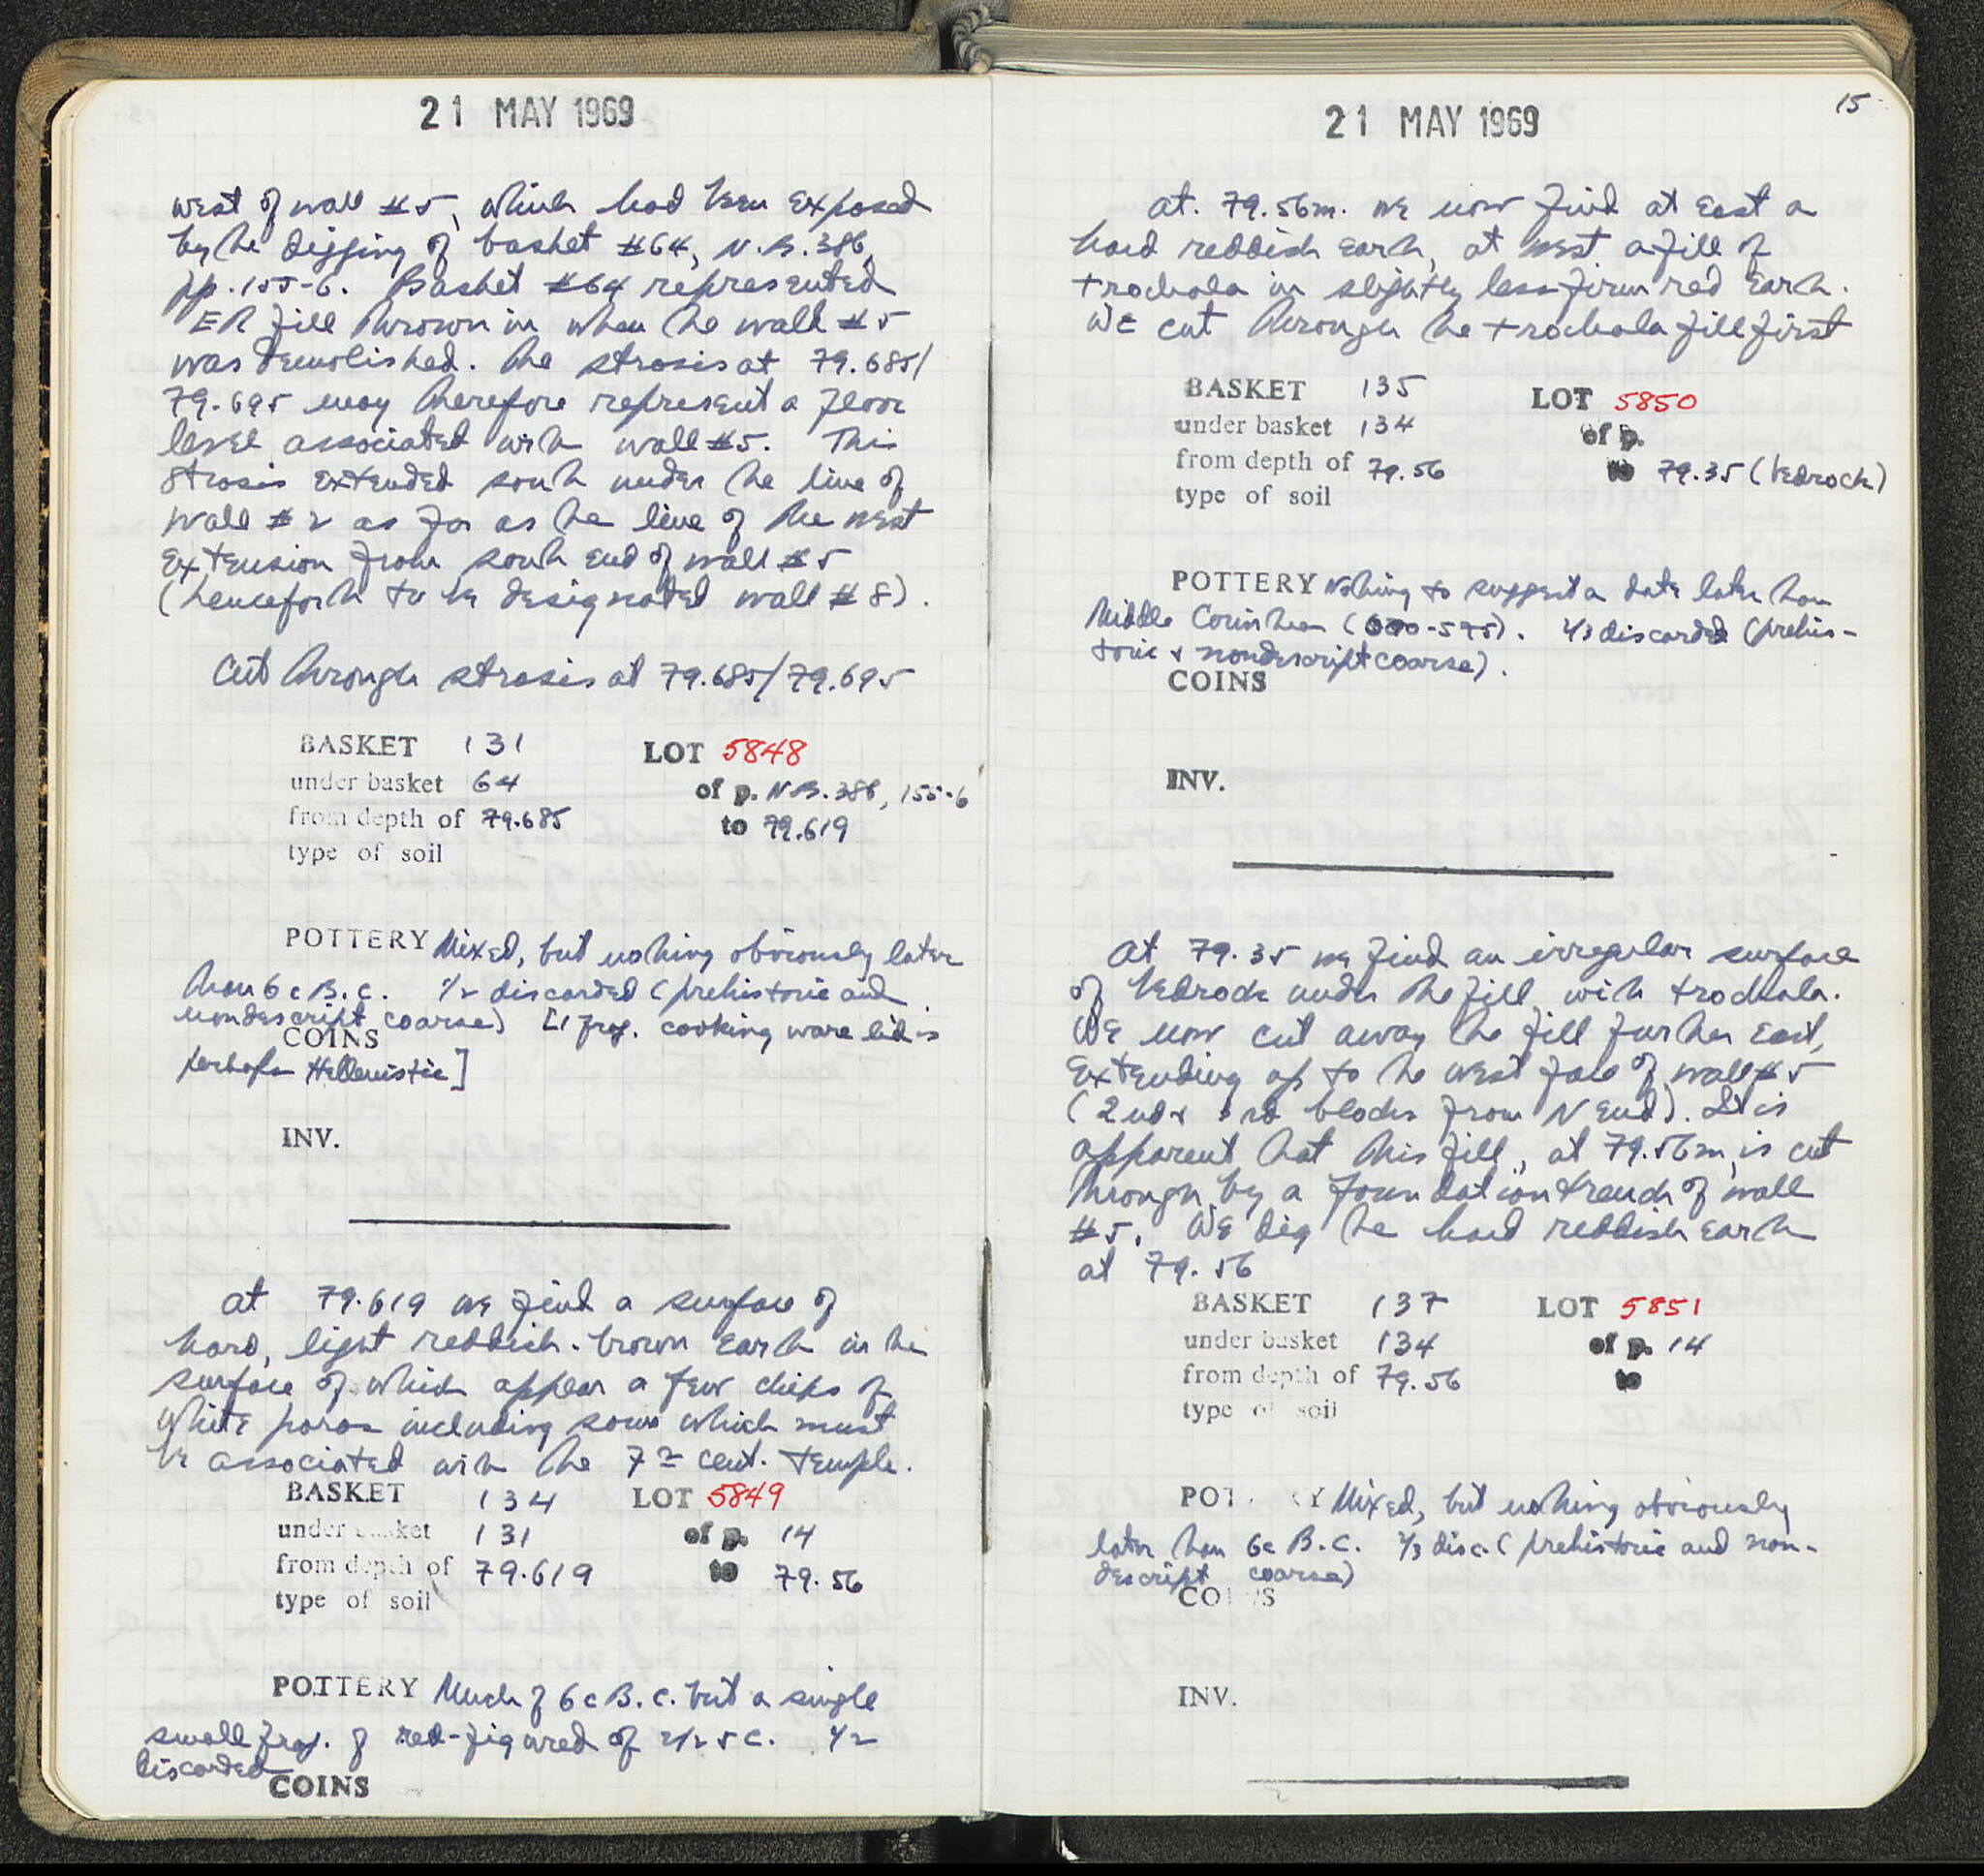 21 MAY 1969
west of wall #5, which had been exposed
by the digging of basket #64, N.B. 386,
pp. 155-6. Basket #64 represented
ER fill thrown in when the wall #5
was demolished. The strosis at 79.685/
79.695 may therefore represent a floor
level associated with wall #5. This
strosis extended south under the line of
wall #2 as far as the line of the west
extension from south end of wall #5
(henceforth to be designated wall #8).
Cut through strosis at 79.685/79.695
BASKET 131 LOT 5848
under basket 64 of p. N.B. 386, 155-6
from depth of 79.685 to 79.619
type of soil
POTTERY Mixed, but nothing obviously later
than 6c B.C. 1/2 discarded (prehistoric and
nondescript coarse) [1 frag. cooking ware lid is
COINS
perhaps Hellenistic]
INV.
at 79.619 we find a surface of
hard, light reddish-brown earth in the
surface of which appear a few chips of
white poros including some which must
be associated with the 7th cent. temple.
BASKET 134 LOT 5849
under basket 131 of p. 14
from depth of 79.619 to 79.56
type of soil
POTTERY Much of 6c B.C. but a single
small frag. of red-figured of 2/2 5 C. 1/2
discarded
COINS
15
21 MAY 1969
at 79.56m. we now find at east a
hard reddish earth, at west a fill of
trochala in slightly less firm red earth.
We cut through the trochala fill first
BASKET 135 LOT 5850
under basket 134 of p.
from depth of 79.56 to 79.35 (bedrock)
type of soil
POTTERY Nothing to suggest a date later than
Middle Corinthian (600-575). 1/3 discarded (prehis-
toric & nondescript coarse).
COINS
INV.
At 79.35 we find an irregular surface
of bedrock under the fill with trochala.
We now cut away the fill further east,
extending up to the west face of wall #5
(2nd & 3rd blocks from N end). It is
apparent that this fill, at 79.56m, is cut
through by a foundation trench of wall
#5. We dig the hard reddish earth
at 79.56
BASKET 137 LOT 5851
under basket 134 of p. 14
from depth of 79.56 to
type of soil
POTTERY Mixed, but nothing obviously
later than 6c B.C. 1/3 disc. (prehistoric and non-
descript coarse)
COINS
INV.